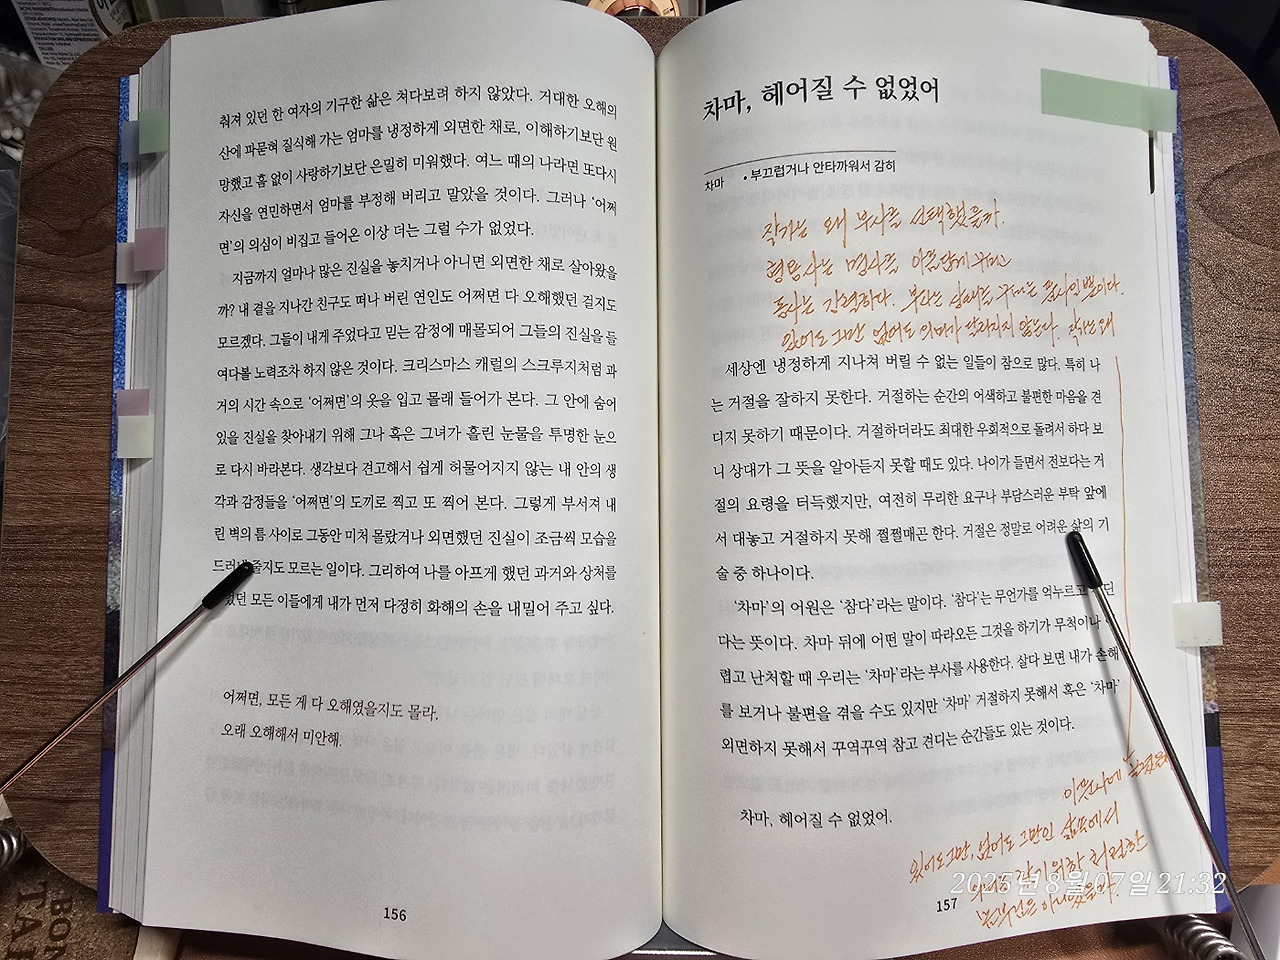 춰져 있던 한 여자의 기구한 삶은 쳐다보려 하지 않았다. 거대한 오해의
산에 파묻혀 질식해 가는 엄마를 냉정하게 외면한 채로, 이해하기보단 원
망했고 흠 없이 사랑하기보단 은밀히 미워했다. 여느 때의 나라면 또다시
자신을 연민하면서 엄마를 부정해 버리고 말았을 것이다. 그러나 ‘어쩌
면’의 의심이 비집고 들어온 이상 더는 그럴 수가 없었다.
지금까지 얼마나 많은 진실을 놓치거나 아니면 외면한 채로 살아왔을
까? 내 곁을 지나간 친구도 떠나 버린 연인도 어쩌면 다 오해했던 걸지도
모르겠다. 그들이 내게 주었다고 믿는 감정에 매몰되어 그들의 진실을 들
여다볼 노력조차 하지 않은 것이다. 크리스마스 캐럴의 스크루지처럼 과
거의 시간 속으로 ‘어쩌면’의 옷을 입고 몰래 들어가 본다. 그 안에 숨어
있을 진실을 찾아내기 위해 그나 혹은 그녀가 흘린 눈물을 투명한 눈으
로 다시 바라본다. 생각보다 견고해서 쉽게 허물어지지 않는 내 안의 생
각과 감정들을 ‘어쩌면’의 도끼로 찍고 또 찍어 본다. 그렇게 부서져 내
린 벽의 틈 사이로 그동안 미처 몰랐거나 외면했던 진실이 조금씩 모습을
줄지도 모르는 일이다. 그리하여 나를 아프게 했던 과거와 상처를
모든 이들에게 내가 먼저 다정히 화해의 손을 내밀어 주고 싶다.
어쩌면, 모든 게 다 오해였을지도 몰라.
오래 오해해서 미안해.
156
차마, 헤어질 수 없었어
차마 • 부끄럽거나 안타까워서 감히
작가는 왜 부사를 선택했을까.
형용사는 명사를 아름답게 꾸미고
동사는 강력하다. 부사는 상태를 꾸미는 품사인 뿐이다.
있어도 그만 없어도 의미가 달라지지 않는다. 작가는 왜
세상엔 냉정하게 지나쳐 버릴 수 없는 일들이 참으로 많다. 특히 나
는 거절을 잘하지 못한다. 거절하는 순간의 어색하고 불편한 마음을 견
디지 못하기 때문이다. 거절하더라도 최대한 우회적으로 돌려서 하다 보
니 상대가 그 뜻을 알아듣지 못할 때도 있다. 나이가 들면서 전보다는 거
절의 요령을 터득했지만, 여전히 무리한 요구나 부담스러운 부탁 앞에
서 대놓고 거절하지 못해 쩔쩔매곤 한다. 거절은 정말로 어려운 삶의 기
술 중 하나이다.
‘차마’의 어원은 ‘참다’라는 말이다. ‘참다’는 무언가를 억누르고
다는 뜻이다. 차마 뒤에 어떤 말이 따라오든 그것을 하기가 무척이나
럽고 난처할 때 우리는 ‘차마’라는 부사를 사용한다. 살다 보면 내가 손해
를 보거나 불편을 겪을 수도 있지만 ‘차마’ 거절하지 못해서 혹은 ‘차마’
외면하지 못해서 꾸역꾸역 참고 견디는 순간들도 있는 것이다.
차마, 헤어질 수 없었어.
있어도 그만, 없어도 그만인 삶 속에서
157
2025년 8월 07일 21:32